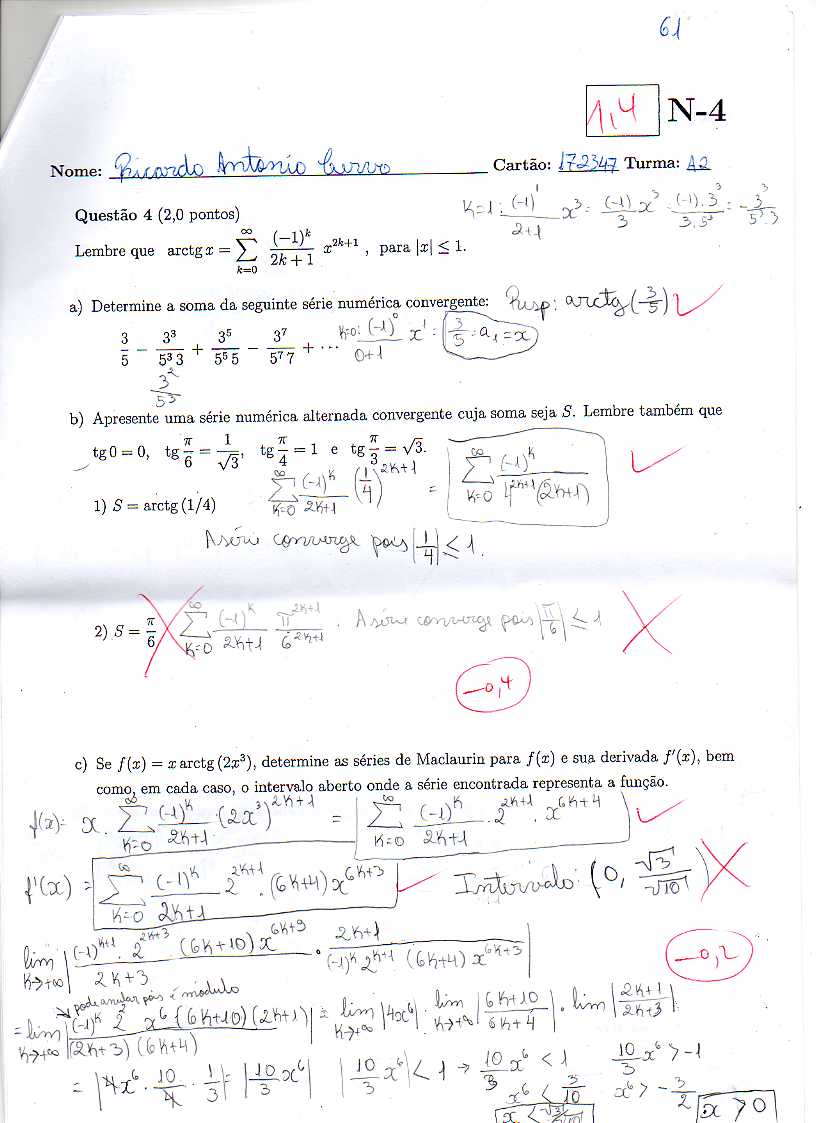 61
1,4 N-4
Nome: Ricardo Antonio Cervo Cartão: 172347 Turma: A2
Questão 4 (2,0 pontos)
K=1: (-1)^1/(2+1) x^3 = (-1)/3 x^3 = (-1).3^3/(3.5^3) = -3^3/(5^3.3)
Lembre que arctg x = ∑_{k=0}^{∞} (−1)^k/(2k+1) x^{2k+1} , para |x| ≤ 1.
a) Determine a soma da seguinte série numérica convergente: Resp: arctg(3/5)
3/5 − 3^3/(5^3 3) + 3^5/(5^5 5) − 3^7/(5^7 7) + ··· K=0: (-1)^0/(0+1) x^1 = 3/5 = a_1 = x
3^2/5^3
b) Apresente uma série numérica alternada convergente cuja soma seja S. Lembre também que
tg 0 = 0, tg π/6 = 1/√3, tg π/4 = 1 e tg π/3 = √3.
1) S = arctg (1/4) ∑_{K=0}^{∞} (-1)^K/(2K+1) (1/4)^{2K+1} = ∑_{K=0}^{∞} (-1)^K/(4^{2K+1}(2K+1))
A série converge pois |1/4| ≤ 1.
2) S = π/6 ∑_{K=0}^{∞} (-1)^K/(2K+1) π^{2K+1}/6^{2K+1} . A série converge pois |π/6| ≤ 1
-0,4
c) Se f(x) = x arctg (2x^3), determine as séries de Maclaurin para f(x) e sua derivada f′(x), bem
como, em cada caso, o intervalo aberto onde a série encontrada representa a função.
f(x) = x . ∑_{K=0}^{∞} (-1)^K/(2K+1) . (2x^3)^{2K+1} = ∑_{K=0}^{∞} (-1)^K/(2K+1) . 2^{2K+1} . x^{6K+4}
f'(x) = ∑_{K=0}^{∞} (-1)^K/(2K+1) 2^{2K+1} . (6K+4) x^{6K+3} Intervalo: (0, √3/√10)
-0,2
lim_{K→+∞} |(-1)^{K+1} . 2^{2K+3} (6K+10) x^{6K+9}/(2K+3) . (2K+1)/((-1)^K 2^{2K+1} (6K+4) x^{6K+3})|
pode anular pois é módulo
= lim_{K→+∞} |(-1)^K 2^2 x^6 (6K+10)(2K+1)/((2K+3)(6K+4))| = lim_{K→+∞} |4x^6| . lim_{K→+∞} |(6K+10)/(6K+4)| . lim |(2K+1)/(2K+3)|
= |4x^6 . 10/4 . 1/3| = |10/3 x^6| |10/3 x^6| < 1 → 10/3 x^6 < 1 10/3 x^6 > -1
x^6 < 3/10 x^6 > -3/2 x > 0